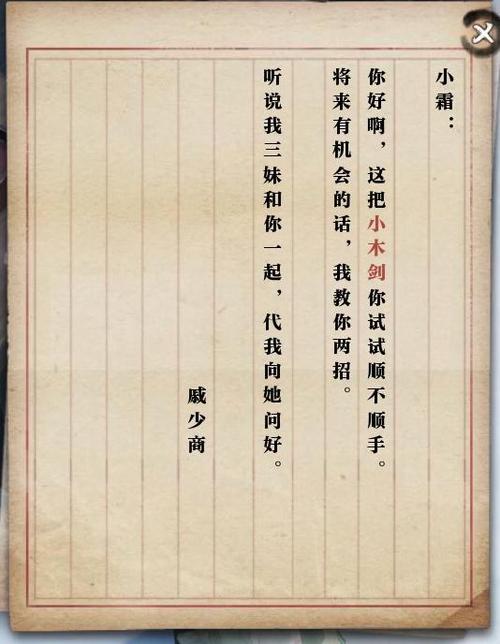 小霜：
你好啊，这把小木剑你试试顺不顺手。
将来有机会的话，我教你两招。
听说我三妹和你一起，代我向她问好。
戚少商